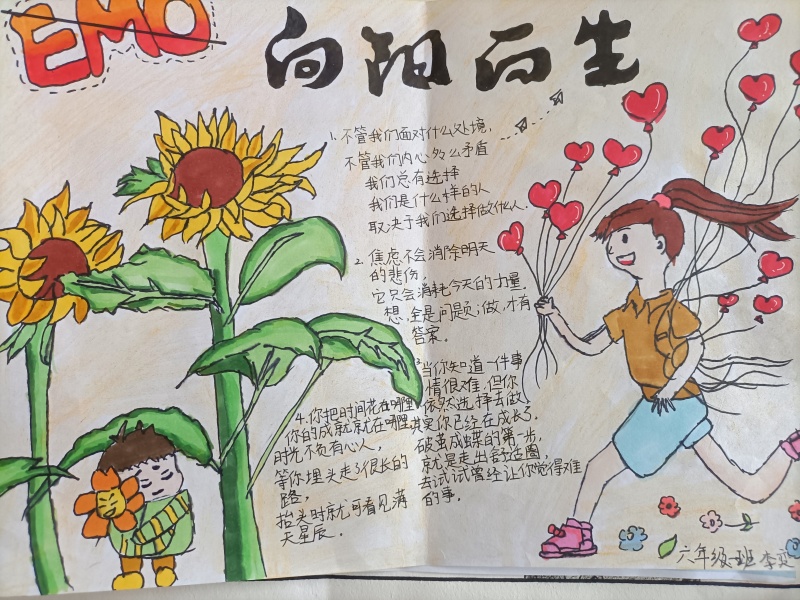 EMO
向阳而生
1. 不管我们面对什么处境，
不管我们内心多么矛盾
我们总有选择
我们是什么样的人
取决于我们选择做什么人.
2. 焦虑不会消除明天
的悲伤，
它只会消耗今天的力量.
想，全是问题；做，才有
答案.
3. 当你知道一件事
情很难，但你
依然选择去做
其实你已经在成长了.
破茧成蝶的第一步，
就是走出舒适圈，
去试试曾经让你觉得难
的事.
4. 你把时间花在哪里
你的成就就在哪里
时光不负有心人，
等你埋头走了很长的
路，
抬头时就可看见满
天星辰.
六年级一班 李